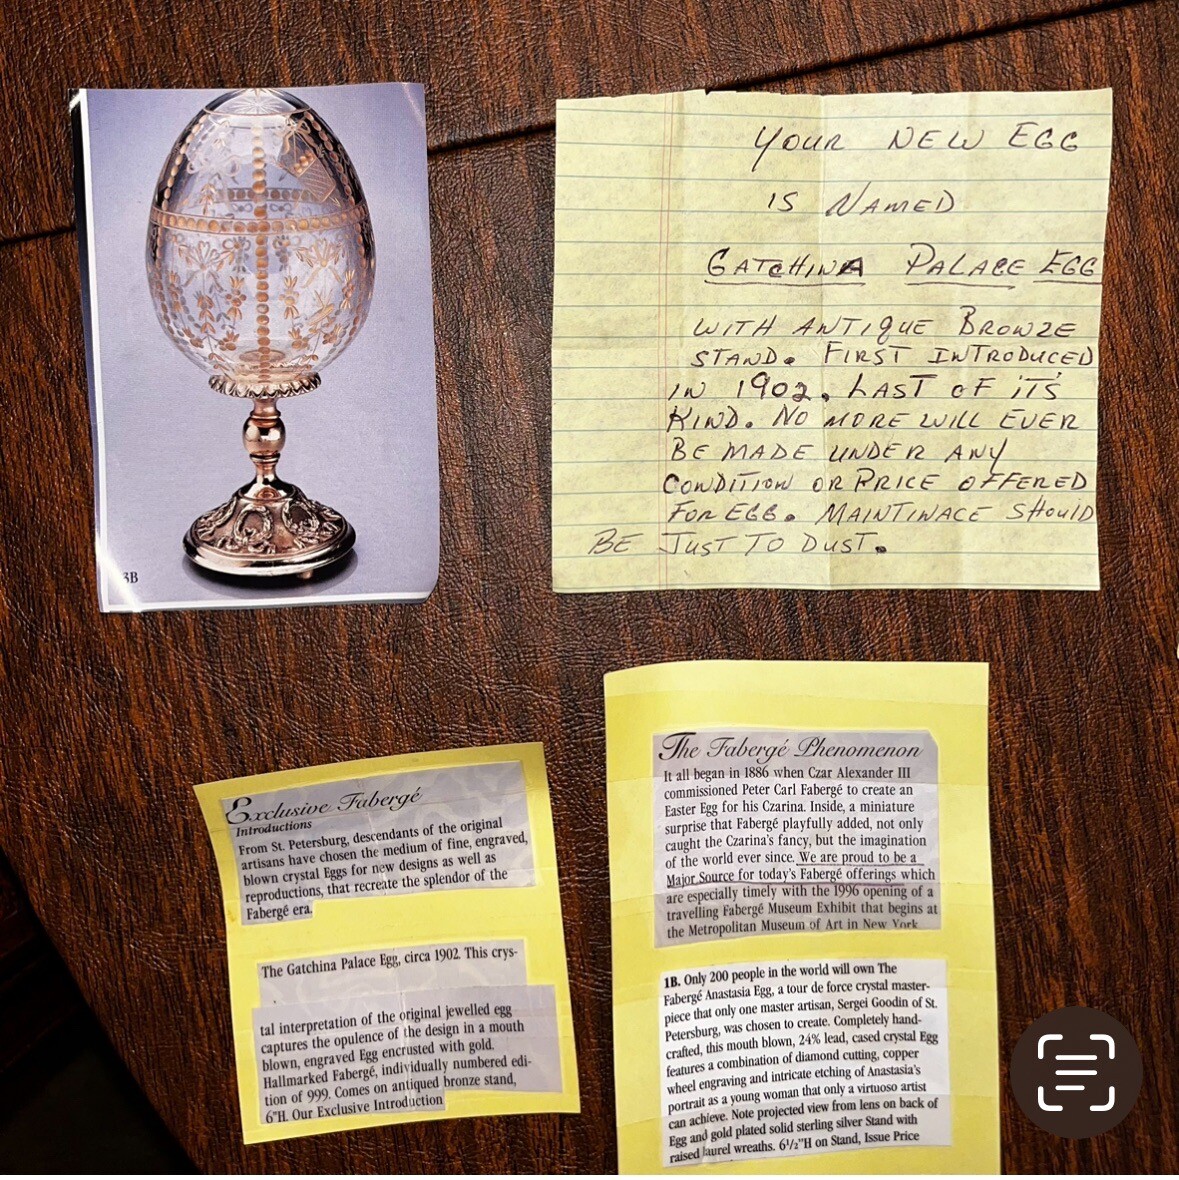 3B
YOUR NEW EGG
IS NAMED
GATCHINA PALACE EGG
WITH ANTIQUE BRONZE
STAND. FIRST INTRODUCED
IN 1902. LAST OF ITS
KIND. NO MORE WILL EVER
BE MADE UNDER ANY
CONDITION OR PRICE OFFERED
FOR EGG. MAINTINACE SHOULD
BE JUST TO DUST.
Exclusive Fabergé
Introductions
From St. Petersburg, descendants of the original
artisans have chosen the medium of fine, engraved,
blown crystal Eggs for new designs as well as
reproductions, that recreate the splendor of the
Fabergé era.
The Gatchina Palace Egg, circa 1902. This crys-
tal interpretation of the original jewelled egg
captures the opulence of the design in a mouth
blown, engraved Egg encrusted with gold.
Hallmarked Fabergé, individually numbered edi-
tion of 999. Comes on antiqued bronze stand,
6"H. Our Exclusive Introduction
The Fabergé Phenomenon
It all began in 1886 when Czar Alexander III
commissioned Peter Carl Fabergé to create an
Easter Egg for his Czarina. Inside, a miniature
surprise that Fabergé playfully added, not only
caught the Czarina's fancy, but the imagination
of the world ever since. We are proud to be a
Major Source for today's Fabergé offerings which
are especially timely with the 1996 opening of a
travelling Fabergé Museum Exhibit that begins at
the Metropolitan Museum of Art in New York
1B. Only 200 people in the world will own The
Fabergé Anastasia Egg, a tour de force crystal master-
piece that only one master artisan, Sergei Goodin of St.
Petersburg, was chosen to create. Completely hand-
crafted, this mouth blown, 24% lead, cased crystal Egg
features a combination of diamond cutting, copper
wheel engraving and intricate etching of Anastasia's
portrait as a young woman that only a virtuoso artist
can achieve. Note projected view from lens on back of
Egg and gold plated solid sterling silver Stand with
raised laurel wreaths. 6½"H on Stand, Issue Price